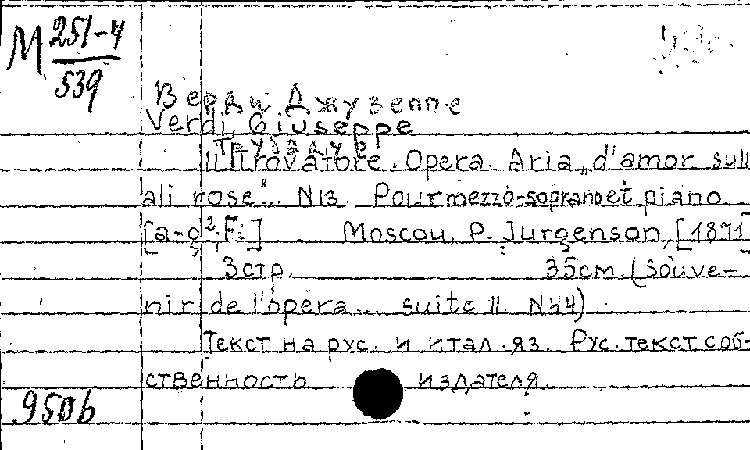 М 251-4
539
Верди Джузеппе
Verdi Giuseppe
Трубадур
Il trovatore. Opera. Aria „d'amor sull
ali rose". N13. Pour mezzo-soprano et piano.
Moscou, P. Jurgenson, [1871]
3стр. 35cm. (Souve-
nir de l'opera... suite II. N44)
Текст на рус. и итал. яз. Рус. текст соб-
ственность издателя.
950b